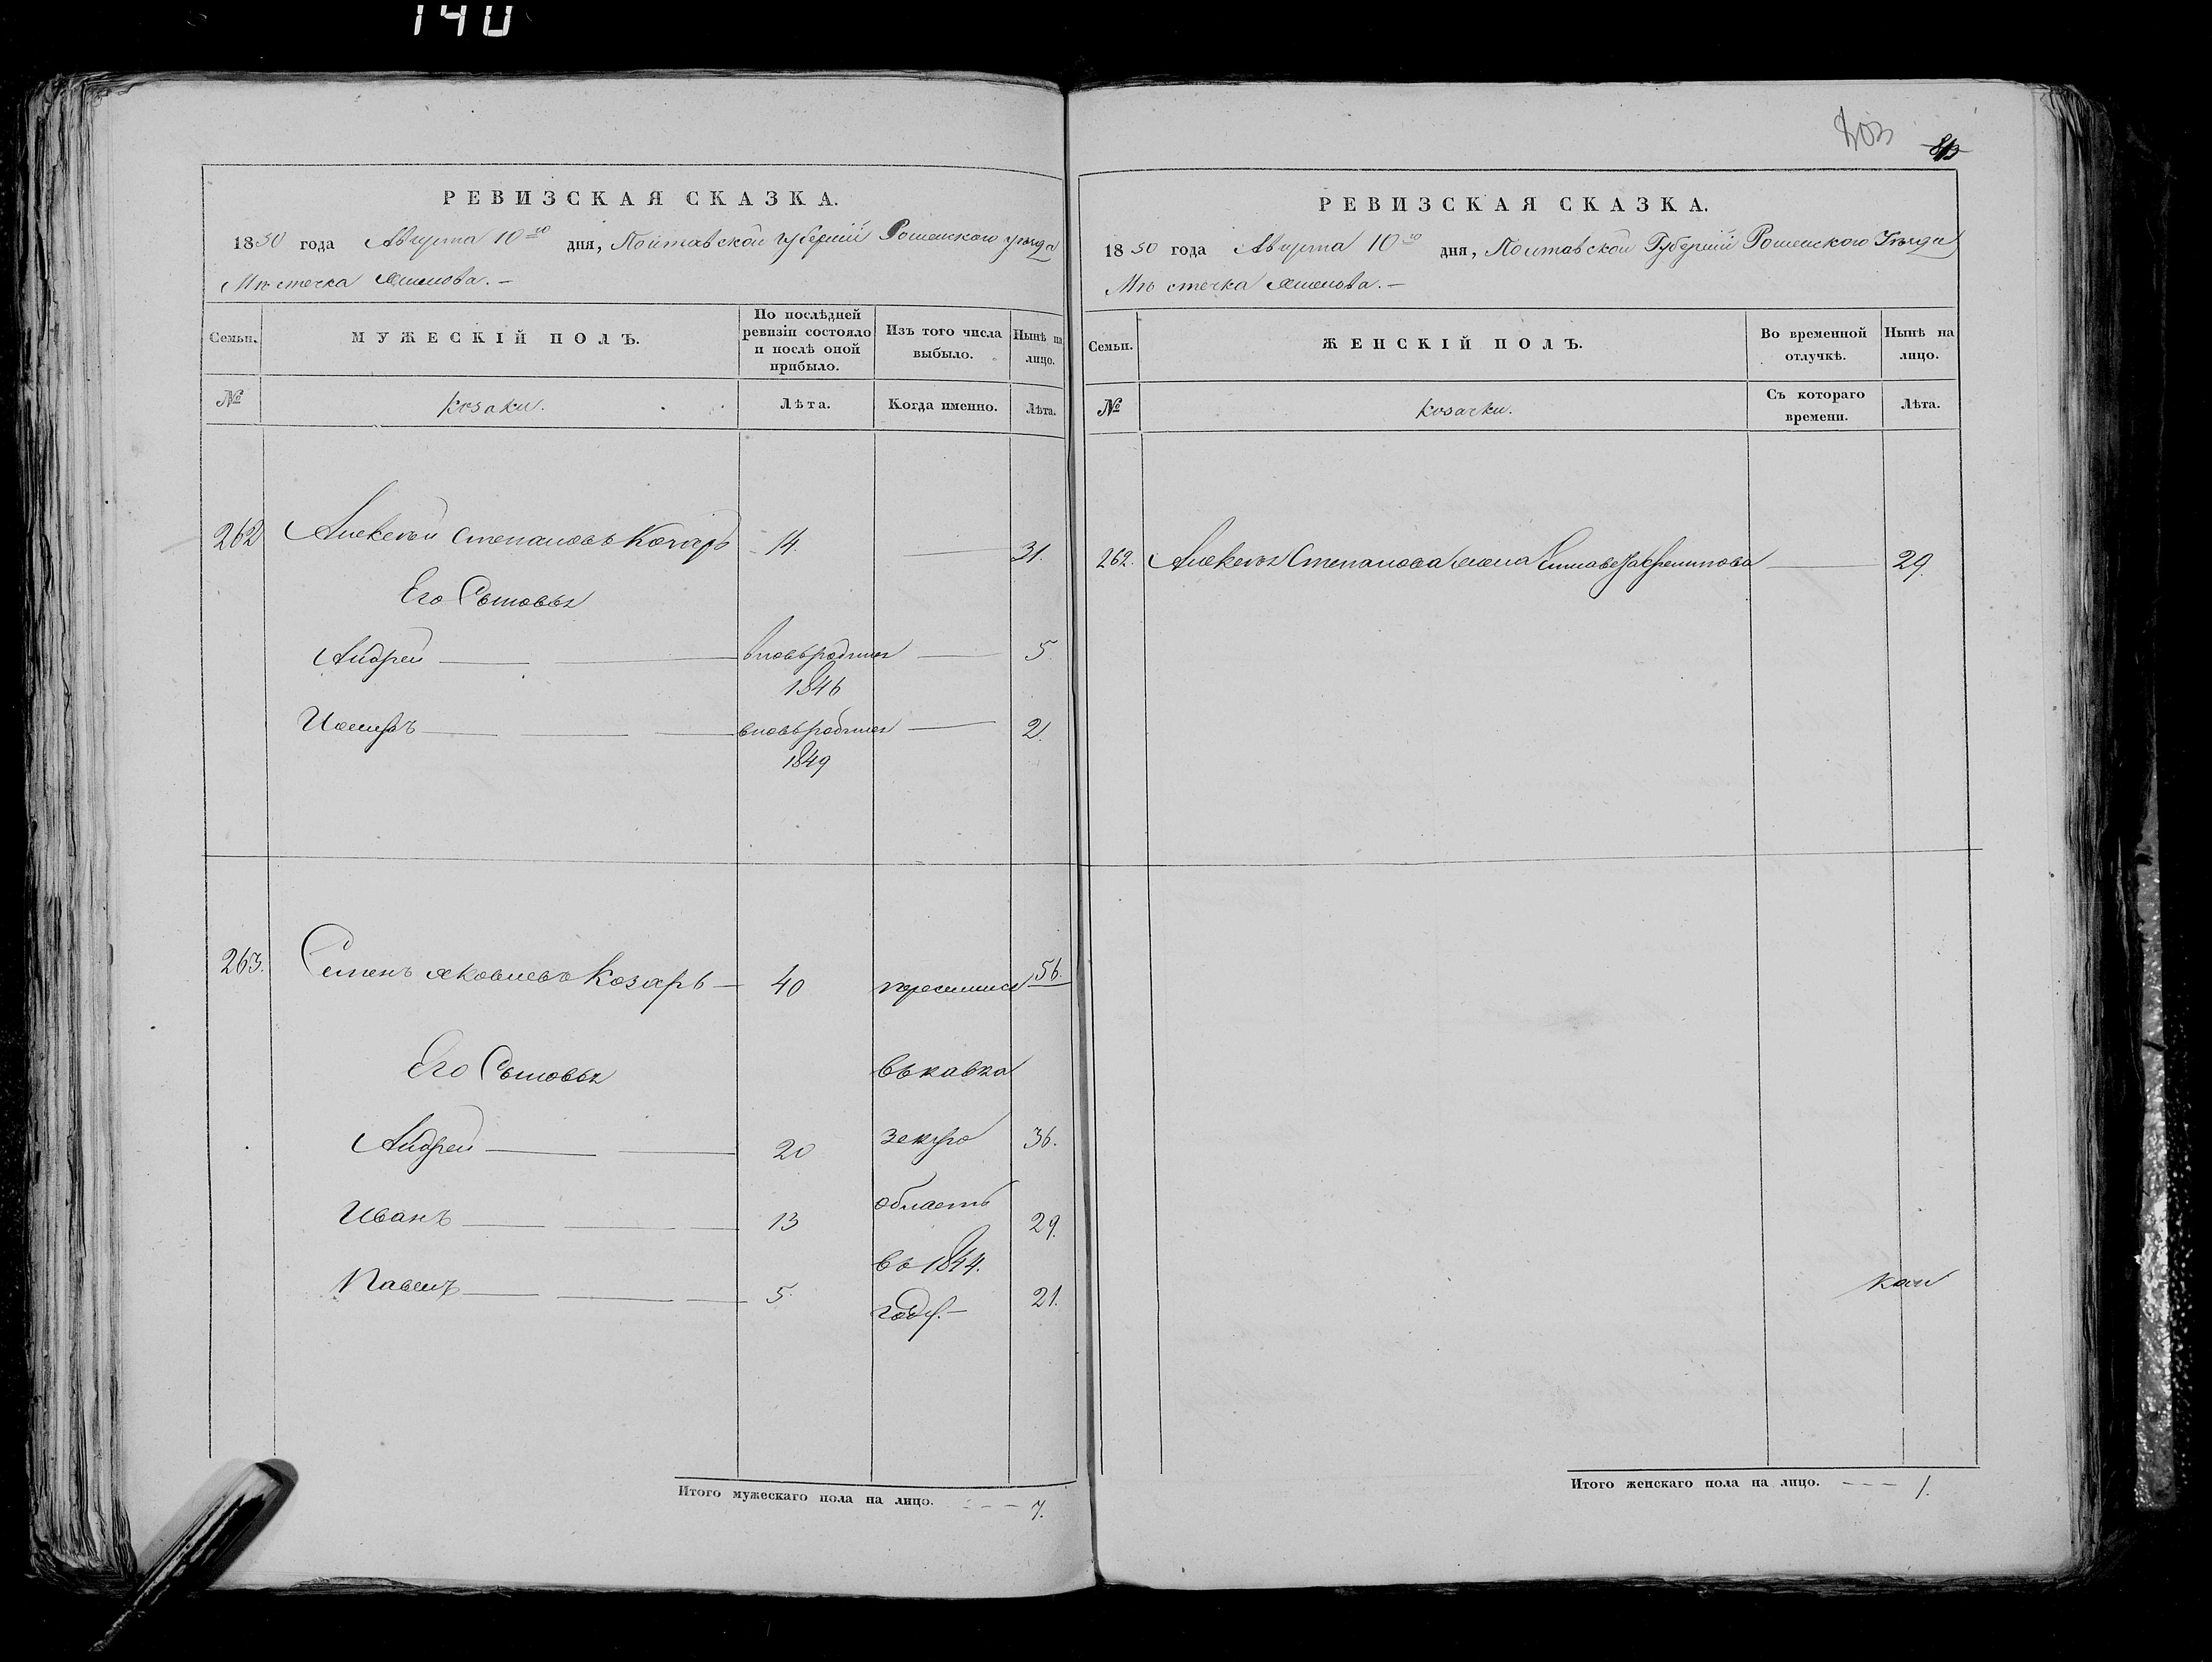 140
803
813
РЕВИЗСКАЯ СКАЗКА.
1850 года Августа 10го дня, Полтавской губерніи Роменского уѣзда
Мѣстечка
Семьи.
МУЖЕСКІЙ ПОЛЪ.
По послѣдней ревизіи состояло и послѣ оной прибыло.
Изъ того числа выбыло.
Нынѣ на лицо.
№
козаки.
Лѣта.
Когда именно.
Лѣта.
262 Алексѣй Степановъ Козаръ 14. 31.
Его Сыновья
Андрей вновьродился 5.
1846
Іосифъ вновьродился 2.
1849
263. Семенъ Яковлевъ Козаръ 40 переселился 56.
Его Сыновья въ кавка
Андрей 20 зскую 36.
Иванъ 13 область 29.
въ 1844.
Павелъ 5. году. 21.
Итого мужескаго пола на лицо. 7.
РЕВИЗСКАЯ СКАЗКА.
1850 года Августа 10го дня, Полтавской Губерніи Роменского Уѣзда
Мѣстечка
Семьи.
ЖЕНСКІЙ ПОЛЪ.
Во временной отлучкѣ.
Нынѣ на лицо.
№
козачки.
Съ котораго времени.
Лѣта.
262. Алексѣя Степанова жена 29.
Итого женскаго пола на лицо. 1.